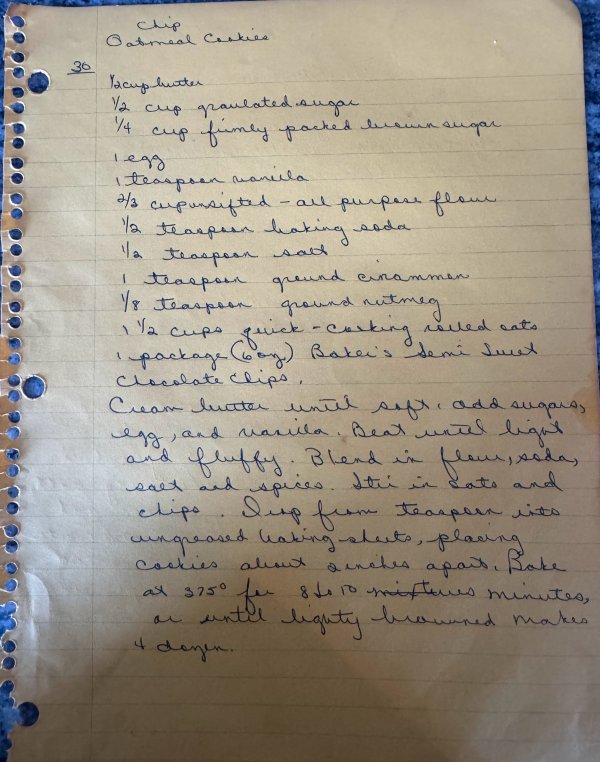 Chip
Oatmeal Cookies
30
1/2 cup butter
1/2 cup graulated sugar
1/4 cup firmly packed brown sugar
1 egg
1 teaspoon vanilla
2/3 cup unsifted - all purpose flour
1/2 teaspoon baking soda
1/2 teaspoon salt
1 teaspoon ground cinammon
1/8 teaspoon ground nutmeg
1 1/2 cups quick - cooking rolled oats
1 package (6 oz) Baker's Semi Sweet
Chocolate Chips.
Cream butter until soft. add sugars,
egg, and vanilla. Beat until light
and fluffy. Blend in flour, soda,
salt and spices. Stir in oats and
chips. Drop from teaspoon into
ungreased baking sheets, placing
cookies about 2 inches apart. Bake
at 375° for 8 to 10 minutes,
or until lighty browned makes
4 dozen.